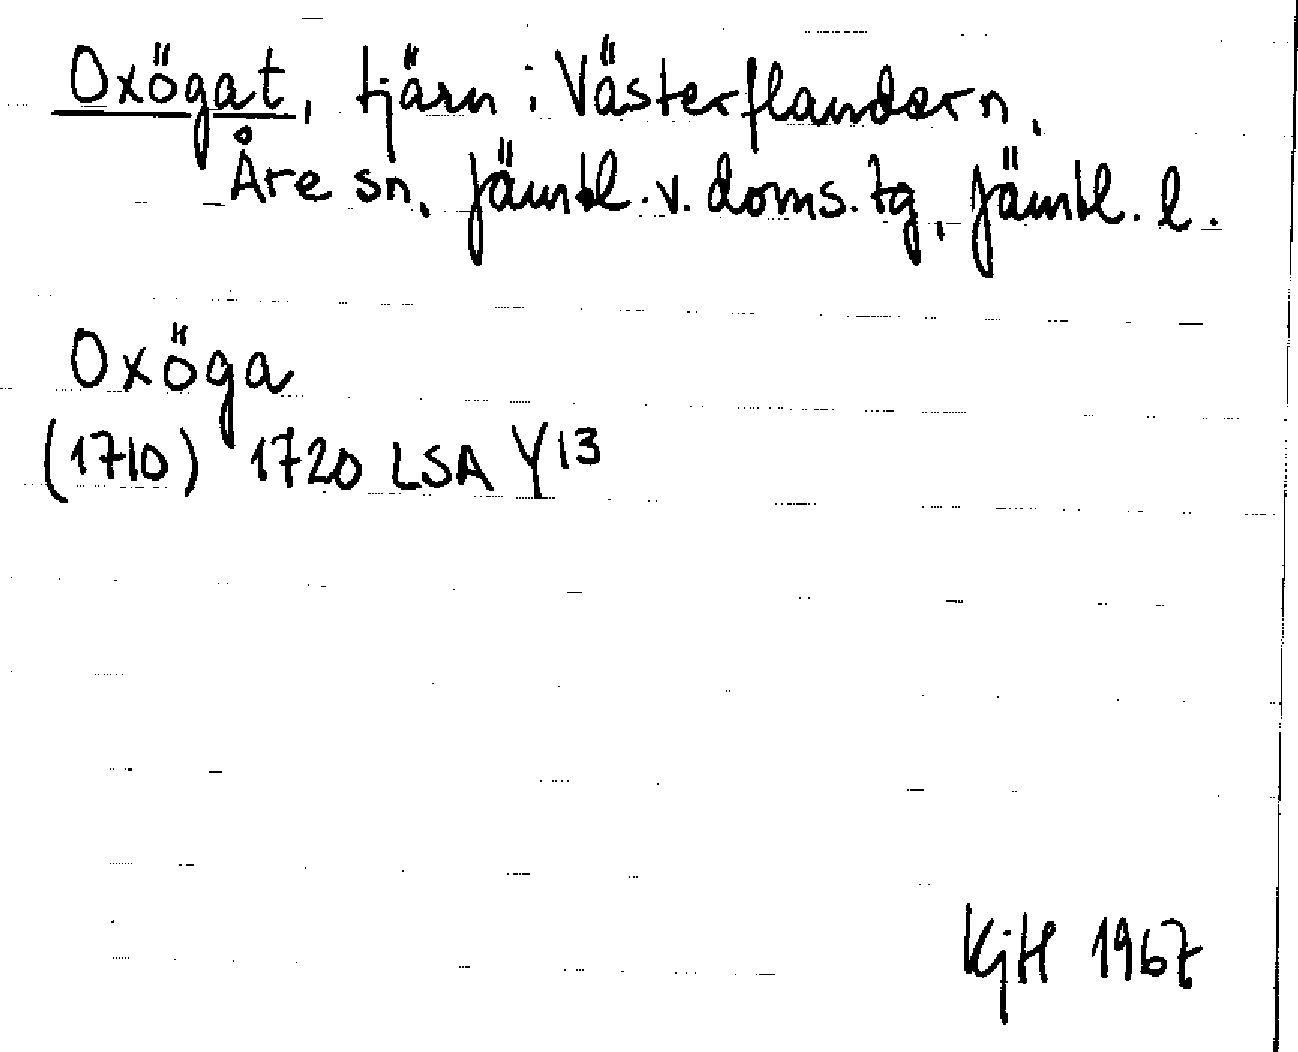 Oxögat, tjärn i Västerflandern,
Åre sn, Jämtl. v. doms. tg, Jämtl. l.
Oxöga
(1710) 1720 LSA Y13
KjH 1967